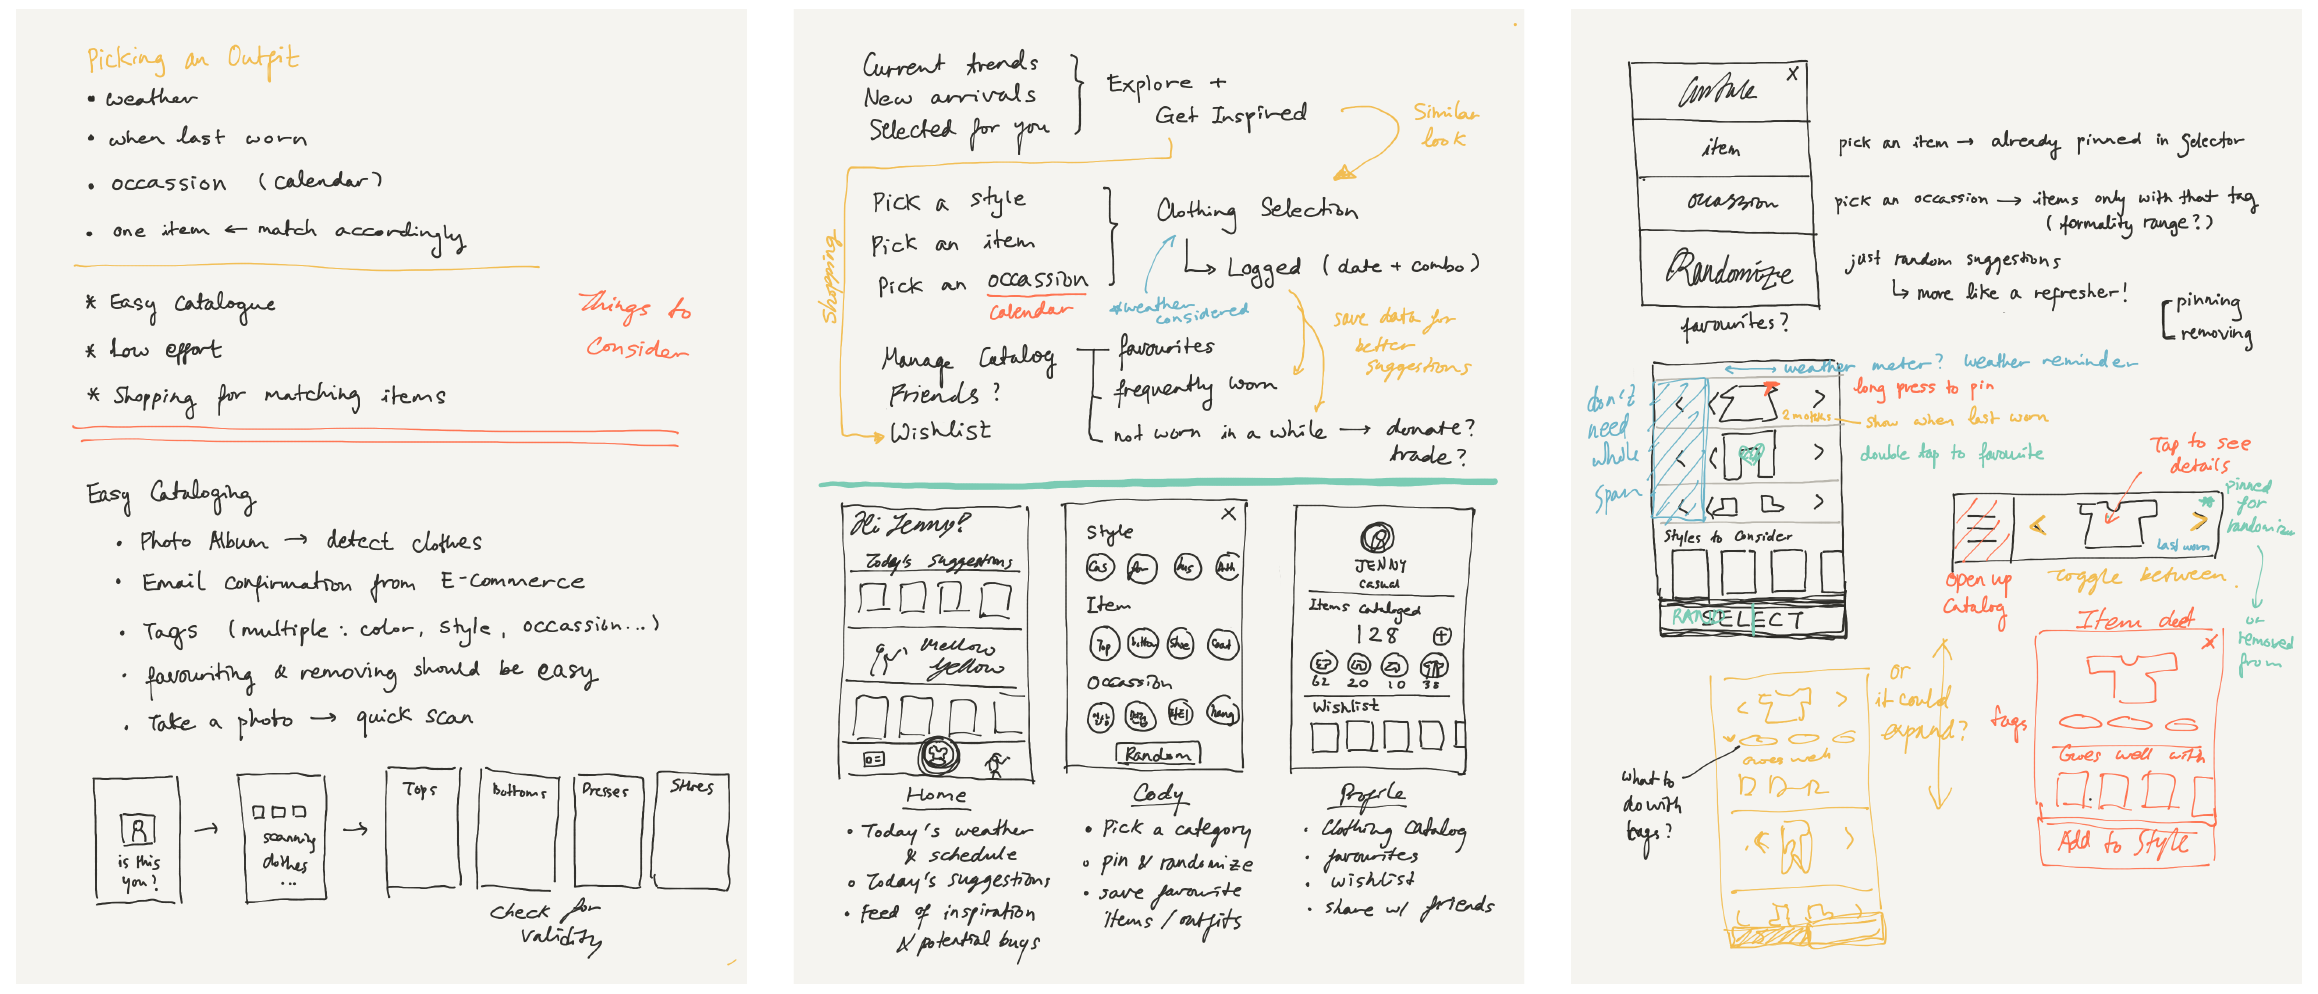 Picking an Outfit
• weather
• when last worn
• occassion (calendar)
• one item ← match accordingly
* Easy Catalogue
* Low effort
* Shopping for matching items
Things to
Consider
Easy Cataloging
• Photo Album → detect clothes
• Email confirmation from E-Commerce
• Tags (multiple: color, style, occassion...)
• favouriting & removing should be easy
• Take a photo → quick scan
is this
you?
→
scanning
clothes
...
→
Tops
Bottoms
Dresses
Shoes
check for
validity
Current trends
New arrivals
Selected for you
Explore +
Get Inspired
Similar
look
Shopping
Pick a style
Pick an item
Pick an occassion
calendar
Clothing Selection
Logged (date + combo)
*weather
considered
save data for
better
suggestions
Manage Catalog
Friends?
Wishlist
favourites
frequently worn
not worn in a while → donate?
trade?
Hi Jenny!
Today's Suggestions
Mellow
Yellow
Home
• Today's weather
& schedule
• Today's suggestions
• Feed of inspiration
& potential buys
X
Style
Cas
for
Ath
Item
Top
bottom
Shoe
Coat
Occassion
일상
파티
Random
Cody
• Pick a category
• pin & randomize
• save favourite
items / outfits
JENNY
casual
Items cataloged
128 +
62 20 10 38
Wishlist
Profile
• Clothing Catalog
• favourites
• wishlist
• share w/ friends
X
item
occassion
Randomize
favourites?
pick an item → already pinned in selector
pick an occassion → items only with that tag
(formality range?)
just random suggestions
more like a refresher!
pinning
removing
weather meter? weather reminder
long press to pin
show when last worn
double tap to favourite
don't
need
whole
span
Styles to Consider
SELECT
Tap to see
details
last worn
* pinned
for
randomize
or
removed
from
open up
Catalog
toggle between
or
it could
expand?
what to
do with
tags?
goes well
Item deet
x
tags
Goes well with
Add to Style